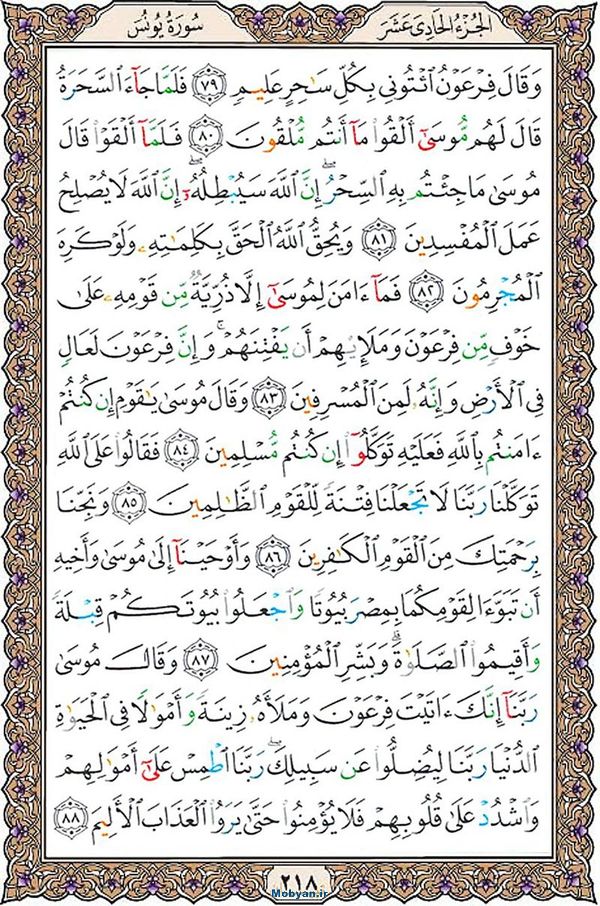 الجُزْءُ الحَادِى عَشَرَ
سُورَةُ يُونُسَ
وَقَالَ فِرْعَوْنُ ٱئْتُونِى بِكُلِّ سَٰحِرٍ عَلِيمٍ ٧٩ فَلَمَّا جَآءَ ٱلسَّحَرَةُ
قَالَ لَهُم مُّوسَىٰٓ أَلْقُوا۟ مَآ أَنتُم مُّلْقُونَ ٨٠ فَلَمَّآ أَلْقَوْا۟ قَالَ
مُوسَىٰ مَا جِئْتُم بِهِ ٱلسِّحْرُ ۖ إِنَّ ٱللَّهَ سَيُبْطِلُهُۥٓ ۖ إِنَّ ٱللَّهَ لَا يُصْلِحُ
عَمَلَ ٱلْمُفْسِدِينَ ٨١ وَيُحِقُّ ٱللَّهُ ٱلْحَقَّ بِكَلِمَٰتِهِۦ وَلَوْ كَرِهَ
ٱلْمُجْرِمُونَ ٨٢ فَمَآ ءَامَنَ لِمُوسَىٰٓ إِلَّا ذُرِّيَّةٌ مِّن قَوْمِهِۦ عَلَىٰ
خَوْفٍ مِّن فِرْعَوْنَ وَمَلَإِي۟هِمْ أَن يَفْتِنَهُمْ ۚ وَإِنَّ فِرْعَوْنَ لَعَالٍ
فِى ٱلْأَرْضِ وَإِنَّهُۥ لَمِنَ ٱلْمُسْرِفِينَ ٨٣ وَقَالَ مُوسَىٰ يَٰقَوْمِ إِن كُنتُمْ
ءَامَنتُم بِٱللَّهِ فَعَلَيْهِ تَوَكَّلُوٓا۟ إِن كُنتُم مُّسْلِمِينَ ٨٤ فَقَالُوا۟ عَلَى ٱللَّهِ
تَوَكَّلْنَا رَبَّنَا لَا تَجْعَلْنَا فِتْنَةً لِّلْقَوْمِ ٱلظَّٰلِمِينَ ٨٥ وَنَجِّنَا
بِرَحْمَتِكَ مِنَ ٱلْقَوْمِ ٱلْكَٰفِرِينَ ٨٦ وَأَوْحَيْنَآ إِلَىٰ مُوسَىٰ وَأَخِيهِ
أَن تَبَوَّءَا لِقَوْمِكُمَا بِمِصْرَ بُيُوتًا وَٱجْعَلُوا۟ بُيُوتَكُمْ قِبْلَةً
وَأَقِيمُوا۟ ٱلصَّلَوٰةَ ۗ وَبَشِّرِ ٱلْمُؤْمِنِينَ ٨٧ وَقَالَ مُوسَىٰ
رَبَّنَآ إِنَّكَ ءَاتَيْتَ فِرْعَوْنَ وَمَلَأَهُۥ زِينَةً وَأَمْوَٰلًا فِى ٱلْحَيَوٰةِ
ٱلدُّنْيَا رَبَّنَا لِيُضِلُّوا۟ عَن سَبِيلِكَ ۖ رَبَّنَا ٱطْمِسْ عَلَىٰٓ أَمْوَٰلِهِمْ
وَٱشْدُدْ عَلَىٰ قُلُوبِهِمْ فَلَا يُؤْمِنُوا۟ حَتَّىٰ يَرَوُا۟ ٱلْعَذَابَ ٱلْأَلِيمَ ٨٨
٢١٨
Mobyan.ir